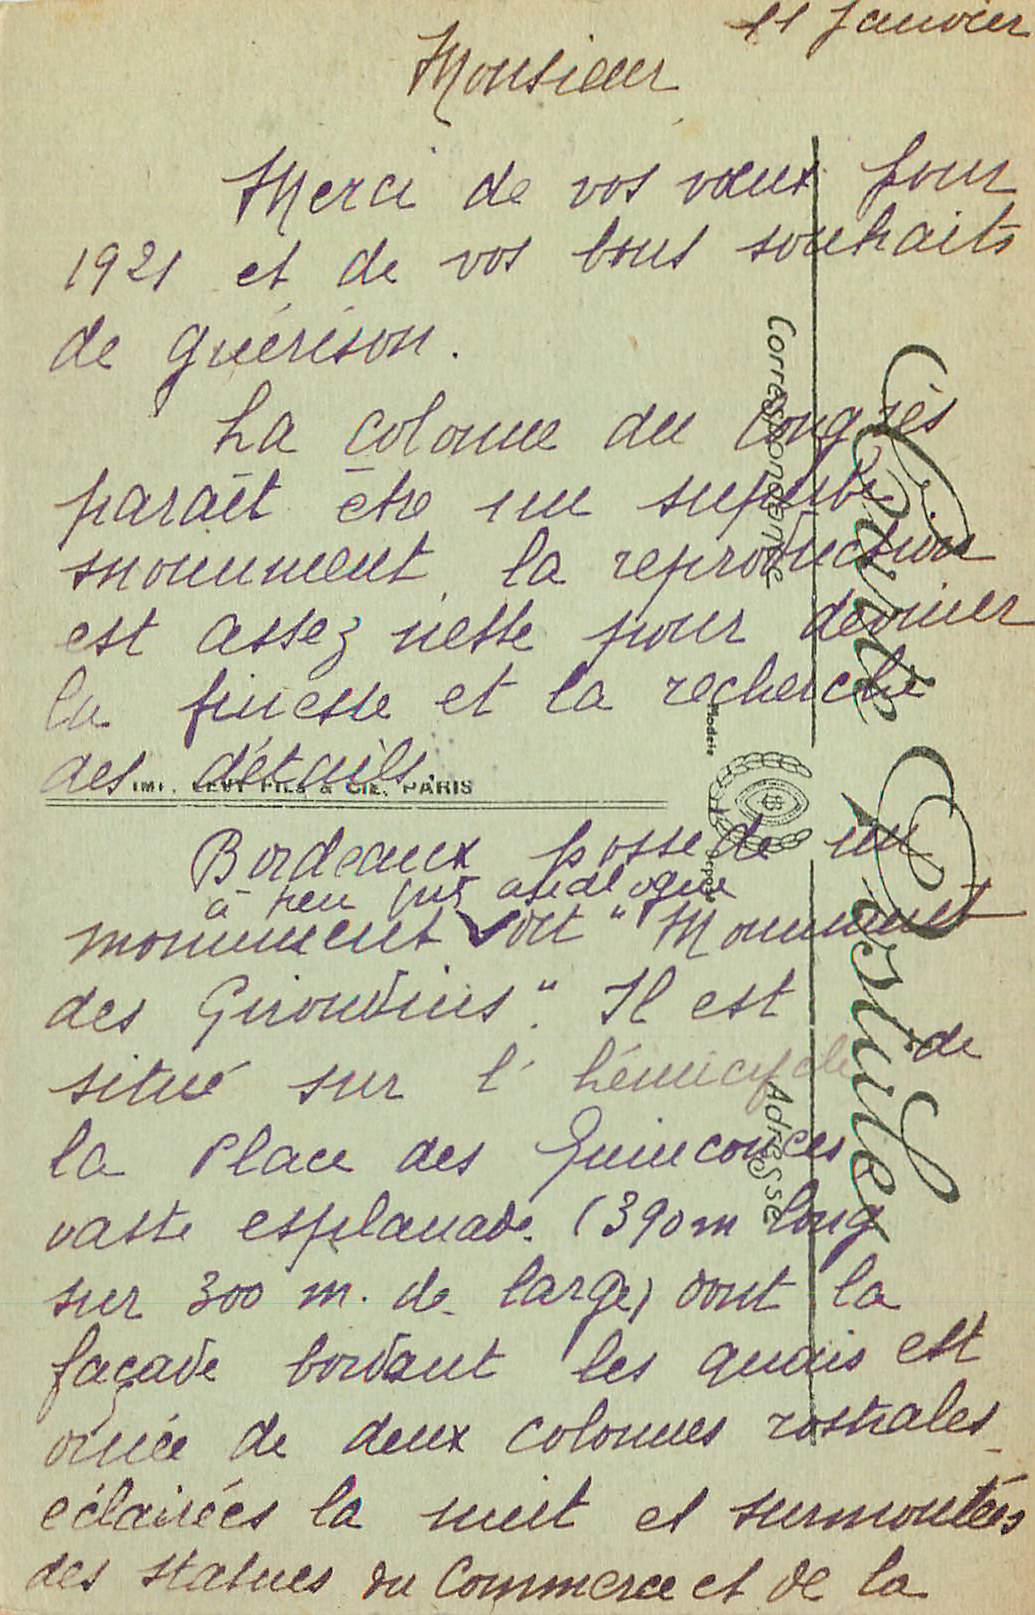 11 Janvier
Monsieur
Merci de vos vœux pour
1921 et de vos bons souhaits
de guérison.
La colonne du Congrès
paraît être un superbe
monument, la reproduction
est assez nette pour deviner
la finesse et la recherche
des détails.
IMP. LEVY FILS & CIE, PARIS
Bordeaux possede un
à peu près analogue
monument dit "Monument
des Girondins". Il est
situé sur l'hémicycle de
la Place des Quinconces
vaste esplanade (390 m long
sur 300 m. de large) dont la
façade bordant les quais est
ornée de deux colonnes rostrales
éclairées la nuit et surmontées
des statues du Commerce et de la
Carte Postale
Correspondance
Adresse
Modèle
déposé